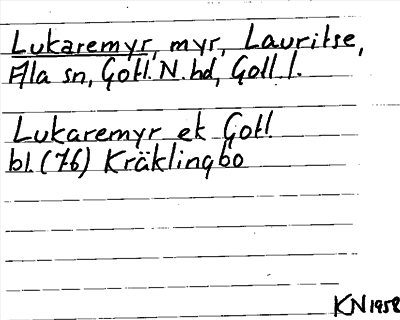 Lukaremyr, myr, Lauritse,
Ala sn, Gotl. N. hd, Gotl. l.
Lukaremyr ek Gotl
bl. (76) Kräklingbo
KN 1958